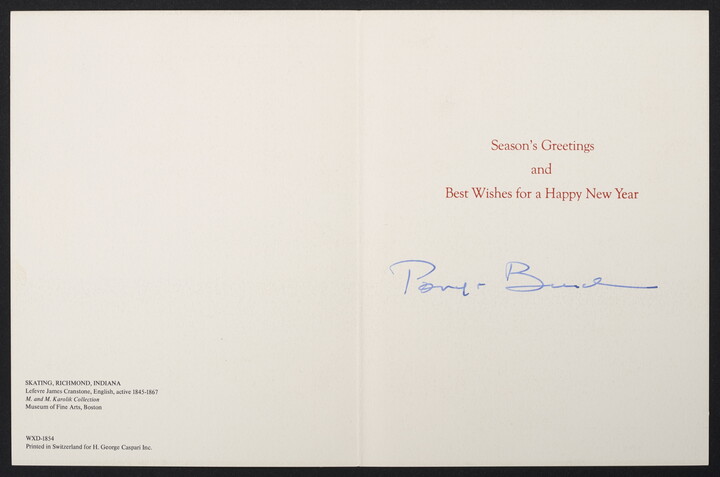 SKATING, RICHMOND, INDIANA
Lefevre James Cranstone, English, active 1845-1867
M. and M. Karolik Collection
Museum of Fine Arts, Boston
WXD-1854
Printed in Switzerland for H. George Caspari Inc.
Season's Greetings
and
Best Wishes for a Happy New Year